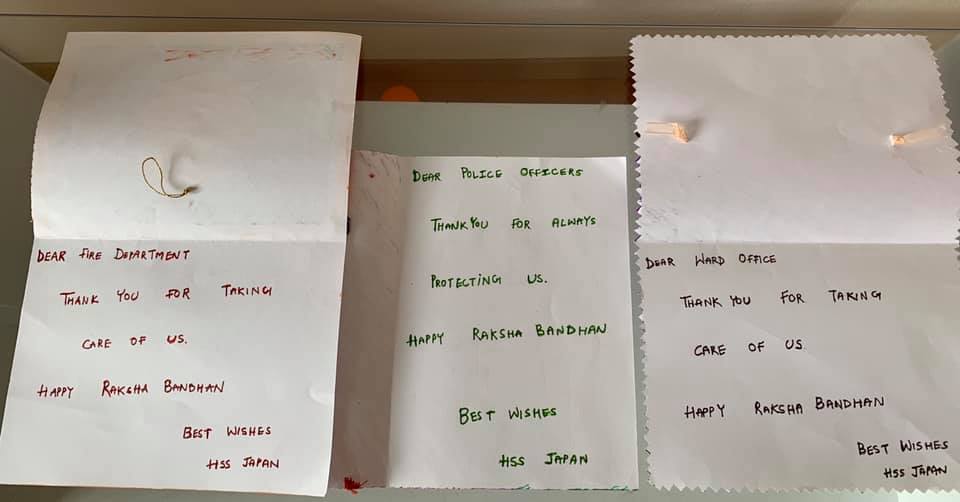 DEAR FIRE DEPARTMENT
THANK YOU FOR TAKING
CARE OF US.
HAPPY RAKSHA BANDHAN
BEST WISHES
HSS JAPAN
DEAR POLICE OFFICERS
THANK YOU FOR ALWAYS
PROTECTING US.
HAPPY RAKSHA BANDHAN
BEST WISHES
HSS JAPAN
DEAR WARD OFFICE
THANK YOU FOR TAKING
CARE OF US.
HAPPY RAKSHA BANDHAN
BEST WISHES
HSS JAPAN